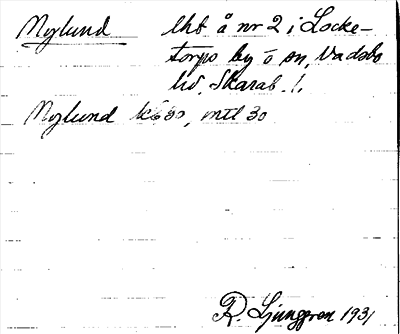 Nylund lht å nr 2 i Locke-
torps by o sn, Vadsbo
hd, Skarab. l.
Nylund mtl 30
R. Ljunggren 1931